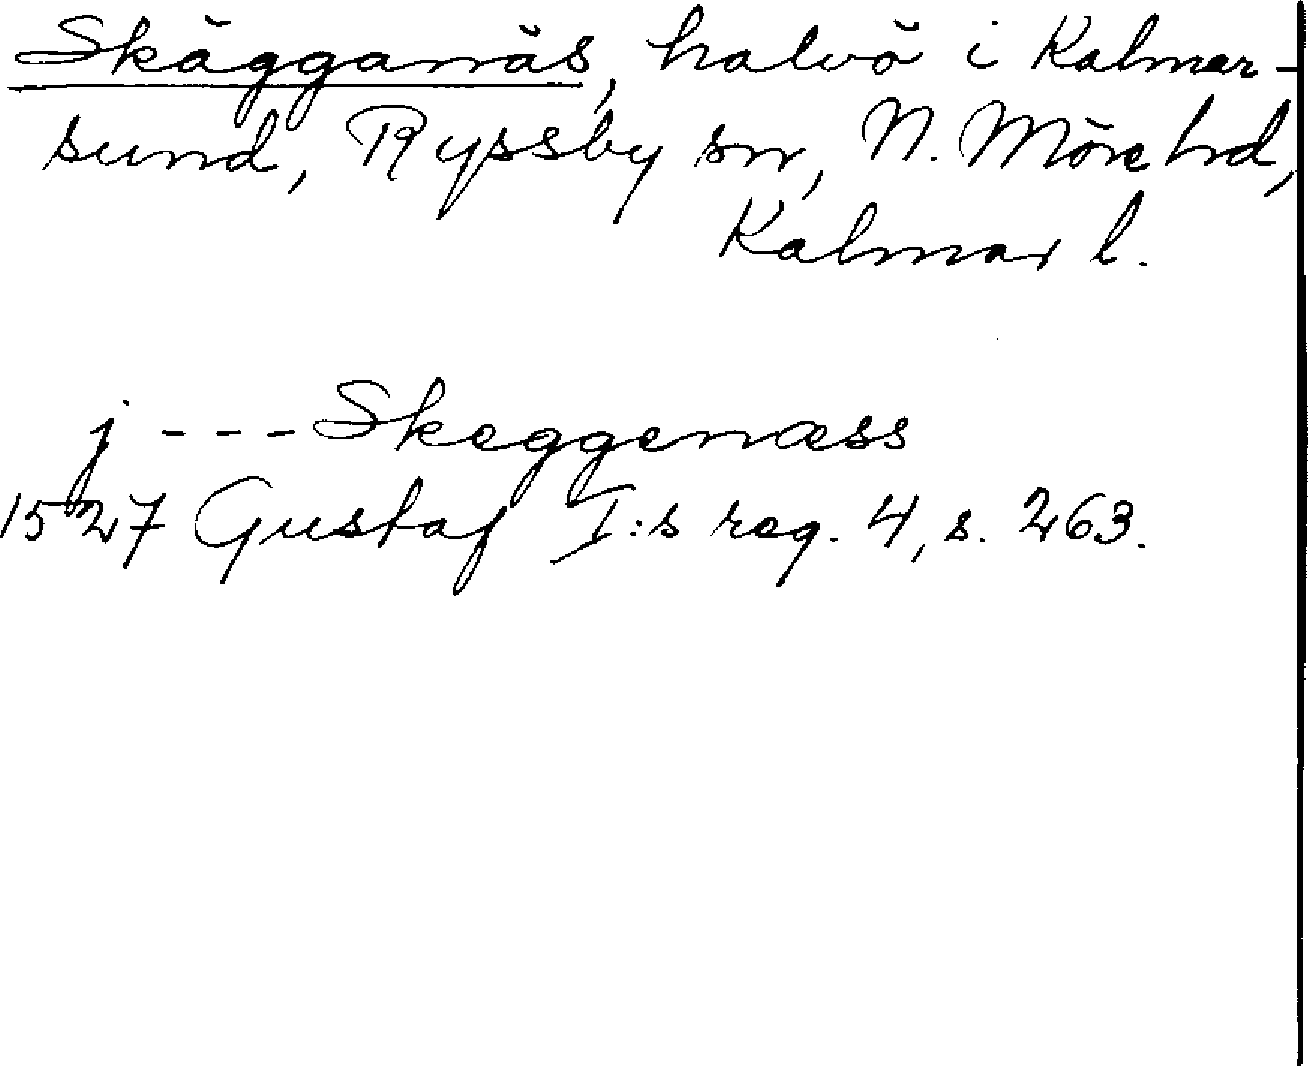 Skäggenäs, halvö i Kalmar-
sund, Ryssby sn, N. Möre hd,
Kalmar l.
j - - - Skeggenæss
1527 Gustaf I:s reg. 4, s. 263.